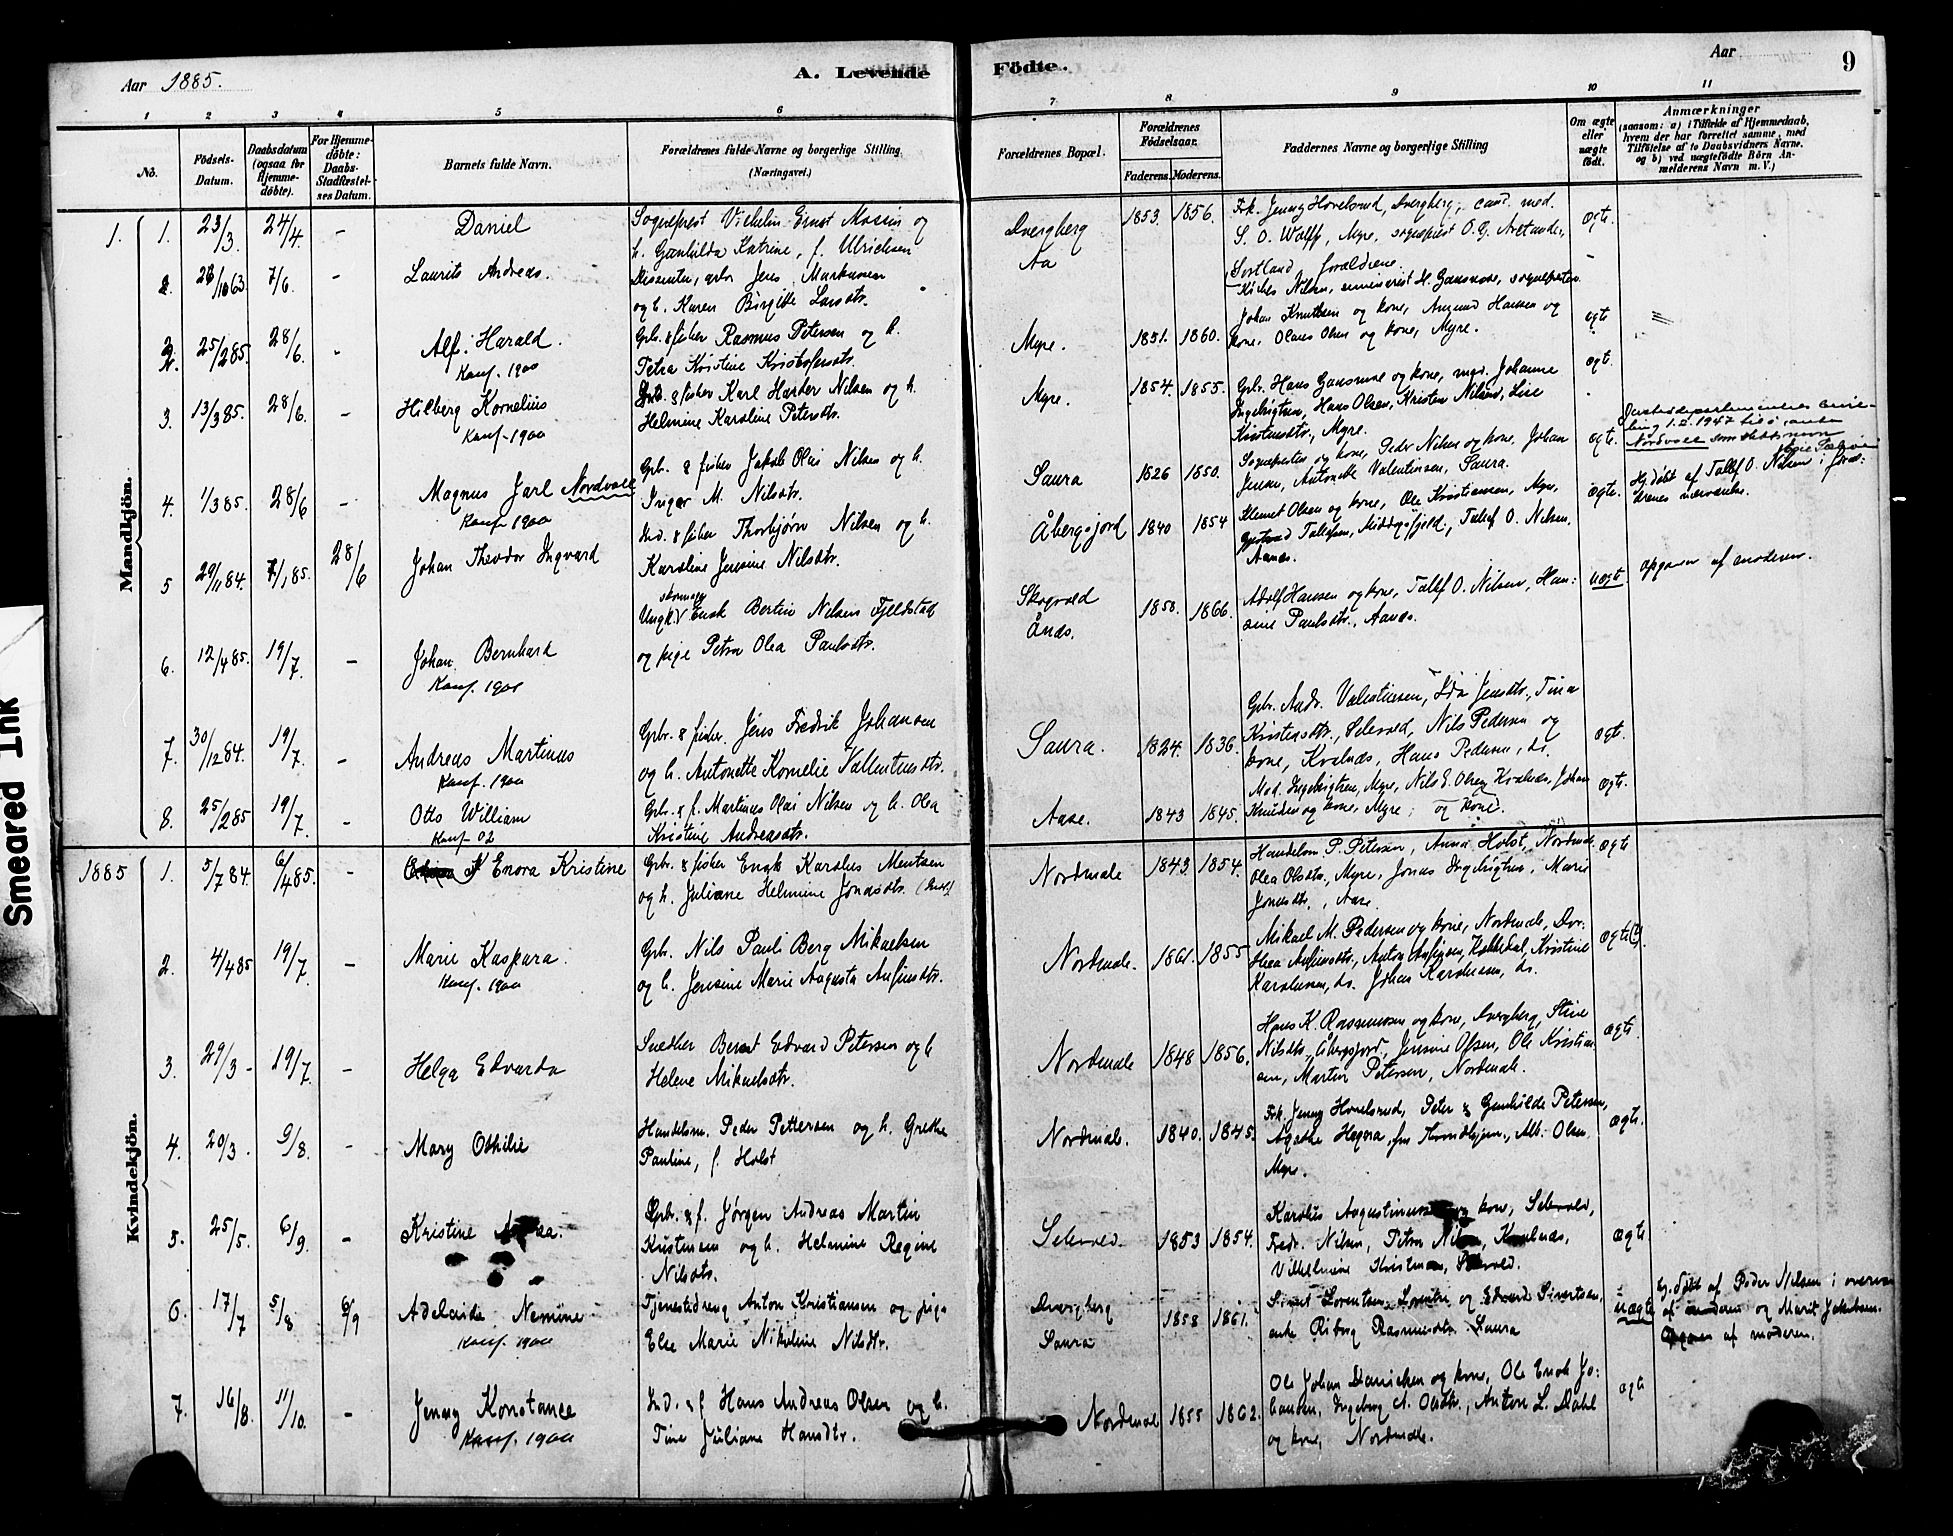 Aar 1885.
A. Levende
Födte.
Aar
9
1 2 3 4 5 6 7 8 9 10 11
No.
Födsels-
Datum.
Daabsdatum
(ogsaa for
Hjemme-
döbte).
For Hjemme-
döbte:
Daabs-
Stadfæstel-
ses Datum.
Barnets fulde Navn.
Forældrenes fulde Navne og borgerlige Stilling
(Næringsvei.)
Forældrenes Bopæl.
Forældrenes
Födselsaar.
Faderens. Moderens.
Faddernes Navne og borgerlige Stilling
Om ægte
eller
uægte
födt.
Anmærkninger
(saasom: a) i Tilfælde af Hjemmedaab,
hvem der har forrettet samme, med
Tilföielse af to Daabsvidners Navne.
og b) ved uægtefödte Börn An-
melderens Navn m. V.)
Mandkjön.
1. 1. 23/3. 24/4. - Daniel
Sogneprest Vilhelm Ernst Massin og
h. Gunhilda Katrine, f. Ulrichsen
Dvergberg 1853. 1856.
Frk. Jenny Hovelsrud, Dvergberg, cand. med.
S. O. Wolff, Myre, sogneprest O. G.
Sortland, forældrene.
ægte
7/6. - Laurits Andreas.
Dissenter, Jens Markussen
og h. Karen Birgitte Larsdtr.
Aa
Nilsen, seminarist H. Gaasnese, sognepresten
-
2. 25/285. 28/6. - Alf. Harald.
Konf. 1900
Gbr. & fisker Rasmus Petersen og h.
Petra Kristine Kristofersdtr.
Myre. 1851. 1860.
Johan Knutsen og kone, Amund Hansen og
kone, Olaus Olsen og kone, Myre.
ægte
3. 13/385. 28/6. - Hilberg Kornelius
Konf. 1900
Ind. & fisker Karl Harder Nilsen og h.
Helmine Karoline Petersdtr.
Myre. 1854. 1855.
Gbr. Hans Gaasnese og kone, Johanne
Ingebrigtsen, Hans Olsen, Kristen Nilsen, Lise
Kristensdtr., Myre.
ægt.
4. 1/385. 28/6 - Magnus Jarl Nordvoll
Konf. 1900
Gbr. & fisker Jakob Olai Nilsen og h.
Inger M. Nilsdtr.
Saura 1826 1850.
Sognepresten og kone, Peder Nilsen og kone, Johan
Jensen, Antonette Valentinsen, Saura.
ægt.
Justisdepartementets bevil-
ling 1.2.1947 til å
Nordvoll som slektsnavn
5 29/1184. 1/185. 28/6 Johan Theodor Ingvard
Ind. & fisker Thorbjørn Nilsen og h.
Karoline Jensine Nilsdtr.
Åbergsjord 1840 1854
Klemet Olsen og kone, Ole Kristiansen, Myre,
Gjertrud Tollefsen, Middagsfjeld, Tollef O. Nilsen,
Aanes.
ægte.
Hj.døbt af Tollef O. Nilsen i foræl-
drenes nærværelse.
6. 12/485. 19/7. - Johan Bernhard
Konf. 1901
Ungk. skomager Enok Bertin Nilsen Fjeldstad
og pige Petra Olea Paulsdtr.
Skogvold
Ånes.
1858. 1866.
Adolf Hansen og kone, Tollef O. Nilsen, Han-
sine Paulsdtr., Aanes.
uægt.
opgaven af moderen.
7. 30/1284. 19/7. - Andreas Martinus
Konf. 1900
Gbr. & fisker Jens Fredrik Johansen
og h. Antonette Kornelie Vallentinsdtr.
Saura. 1824. 1836.
Gbr. Andr. Valentinsen, Ida Jensdtr., Tina
Kristensdtr., Selevold, Nils Pedersen og
kone, Kvalnæs, Hans Pedersen, ds.
ægt.
8. 25/285 19/7. - Otto William
Konf. 02
Gbr. & f. Martinus Olai Nilsen og h. Olea
Kristine Andreasdtr.
Aase. 1843 1845.
Mad. Ingebrigtsen, Myre, Nils E. Olsen, Kvalnæs, Johan
Knudsen og kone, Myre; og kone.
ægt.
Kvindekjön.
1885 1. 5/784. 6/485. - Enora Kristine
Gbr. & fisker Enok Karolius Mentsen
og h. Juliane Helmine Jonasdtr.
Nordmale 1843. 1854.
Handelsm. P. Petersen, Anna Holst, Nordmale
Olea Olsdtr., Myre, Jonas Ingebrigtsen, Marie
Jonasdtr., Aase.
ægte
2. 4/485 19/7. - Marie Kaspara.
Konf. 1900
Gbr. Nils Pauli Berg Mikaelsen
og h. Jensine Marie Augusta Anfinsdtr.
Nordmale. 1861. 1855
Mikael M. Pedersen og kone, Nordmale, Dor-
thea Anfinsdtr., Anton Anfinsen, Kobbedal, Kristine
Karolusen, ds. Johan Karolusen, ds.
ægte(?)
3. 29/3 - 19/7. - Helga Edvarda
Snedker Bernt Edvard Petersen og h
Helene Mikaelsdtr.
Nordmale 1848 1856.
Hans K. Rasmussen og kone, Dvergberg, Stine
Nilsdtr., Åbergsjord, Jensine Olsen, Ole Kristian-
sen, Martin Petersen, Nordmale.
ægte.
4. 20/3. 9/8. - Mary Othilie
Handelsm. Peder Pettersen og h. Grethe
Pauline, f. Holst
Nordmale. 1840. 1845.
Frk. Jenny Hovelsrud, Peter & Gunhilde Petersen,
Agathe Hegera, frø Throndhjem, Alb. Olsen,
Myre.
ægt.
5. 25/5. 6/9. - Kristine
Gbr. & f. Jørgen Andreas Martin
Kristensen og h. Helmine Regine
Nilsdtr.
Selevold. 1853 1854.
Karolius Augustinussen og kone, Selevold,
Fredr. Nilsen, Petra Nilsen, Kvalnæs,
Vilhelmine Kristensen, Selevold.
ægte
6. 17/7 5/8 6/9 Adelaide Nemine
Konf. 1900
Tjenestedreng Anton Kristiansen og pige
Else Marie Nikoline Nilsdtr.
Dvergberg
Saura
1858 1861.
Sivert Lorentsen, Lorentse og Edvard Sivertsen,
enke Riborg Rasmusdtr. Saura
uægte
Hj. døbt af Peder Nilsen i overvær
af moderen og Marit Jakobsen.
Opgaven af moderen.
7. 16/8. 11/10. - Jenny Konstance
Konf. 1900
Ind. & f. Hans Andreas Olsen og h.
Tine Juliane Hansdtr.
Nordmale 1855 1862.
Ole Johan Danielsen og kone, Ole Enok Jo-
hansen, Ingeborg A. Olsdtr., Anton L. Dahl
og kone, Nordmale.
ægte
Smeared Ink